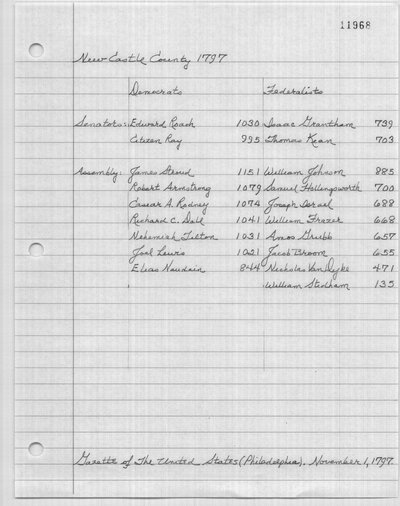 11968
New Castle County 1797
Democrats Federalists
Senators: Edward Roach 1030 Isaac Grantham 739
Citizen Ray 995 Thomas Kean 703
Assembly: James Stroud 1151 William Johnson 885
Robert Armstrong 1079 Samuel Hollingsworth 700
Caesar A. Rodney 1074 Joseph Israel 688
Richard C. Dale 1041 William Frazer 668
Nehemiah Tilton 1031 Amos Grubb 657
Joel Lewis 1021 Jacob Broom 655
Elias Naudain 844 Nicholas Van Dyke 471
William Stedham 135
Gazette of The United States (Philadelphia). November 1, 1797.